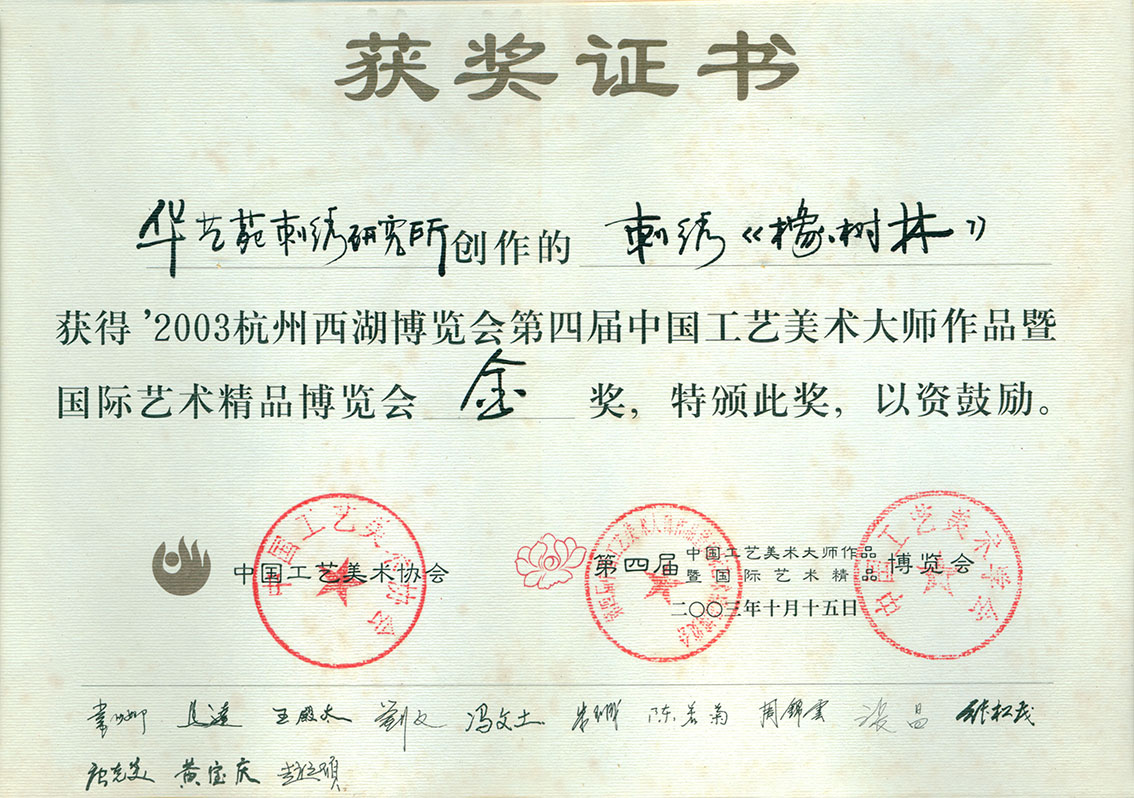 获奖证书
华艺苑刺绣研究所创作的 刺绣《橡树林》
获得'2003杭州西湖博览会第四届中国工艺美术大师作品暨
国际艺术精品博览会 金 奖，特颁此奖，以资鼓励。
中国工艺美术协会
中国工艺美术协会
第四届 中国工艺美术大师作品
暨国际艺术精品 博览会
二〇〇三年十月十五日
中国工艺美术学会
王殿太 刘文 冯文土 陈若菊 周锦云 张昌 张松茂
唐克美 黄宝庆